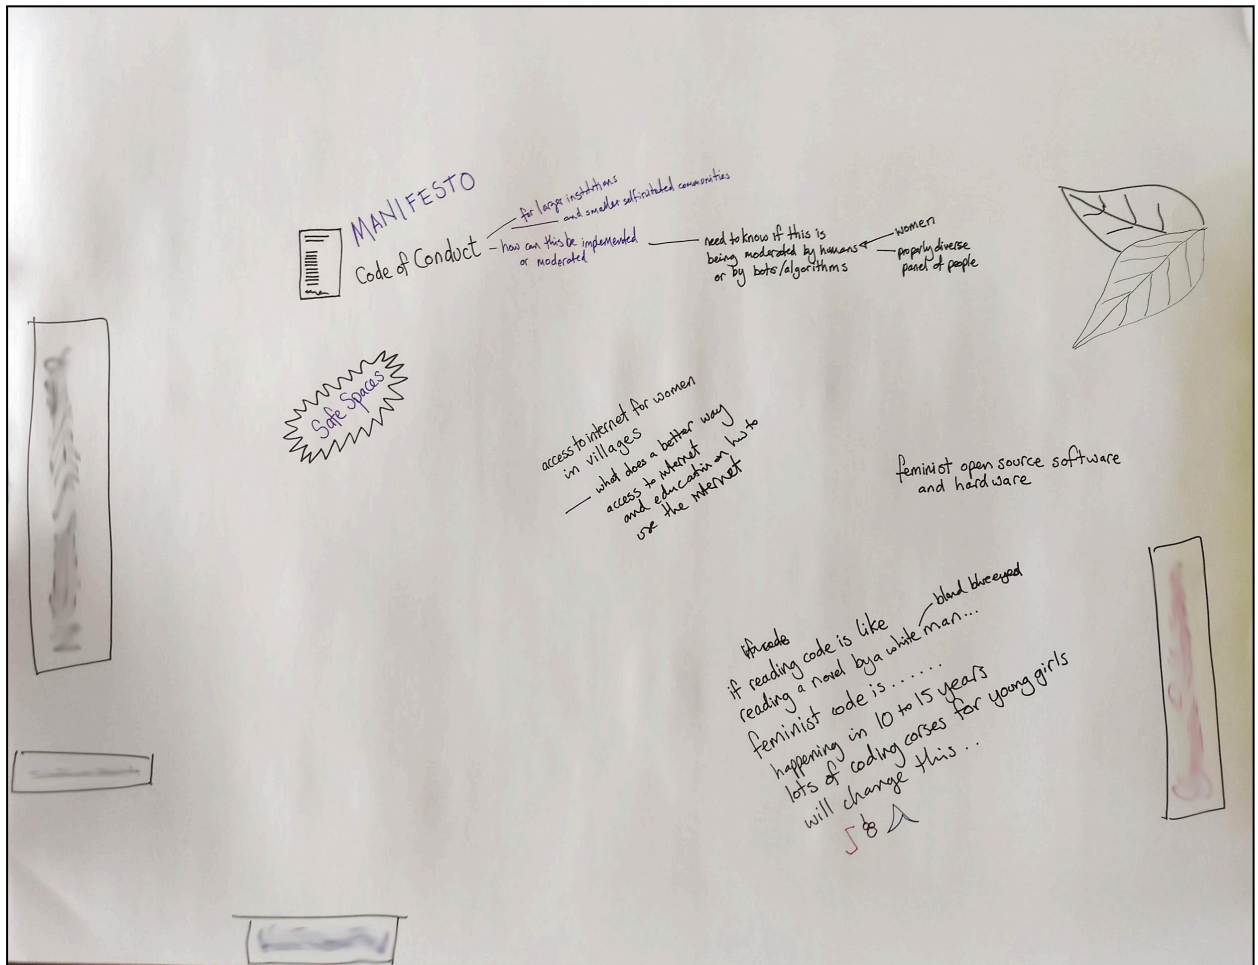 MANIFESTO
Code of Conduct
for larger institutions
and smaller selfinitiated communities
how can this be implemented
or moderated
need to know if this is
being moderated by humans
or by bots/algorithms
women
properly diverse
panel of people
Safe Spaces
access to internet for women
in villages
what does a better way
access to internet
and education on hw to
use the internet
feminist open source software
and hardware
if reading code is like
reading a novel by a white man...
blond blue eyed
feminist code is......
happening in 10 to 15 years
lots of coding corses for young girls
will change this...